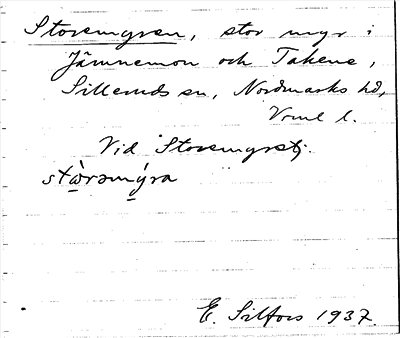 Storemyren, stor myr i
Jämnemon och Takene,
Silleruds sn, Nordmarks hd,
Vrml l.
Vid Storemyrstj.
stὼrəmýra
E. Silfors 1937.